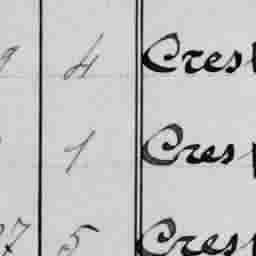 9 4 Cres
1 Cres
27 5 Cres